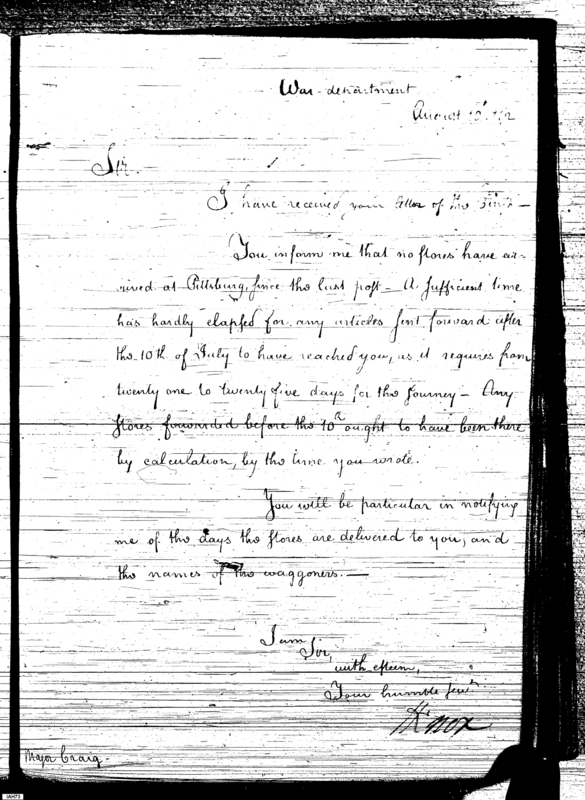 War-department
August 10th 1792
Sir.
I have received your letter of the first-
You inform me that no stores have ar-
rived at Pittsburg, since the last post- A sufficient time
has hardly elapsed for any articles sent forward after
the 10th of July to have reached you, as it requires from
twenty one to twenty five days for the journey- Any
stores forwarded before the 10th ought to have been there
by calculation, by the time you wrote.
You will be particular in notifying
me of the days the stores are delivered to you, and
the names of the waggoners.-
I am
Sir,
with esteem,
Your humble servt
HKnox
Major Craig-